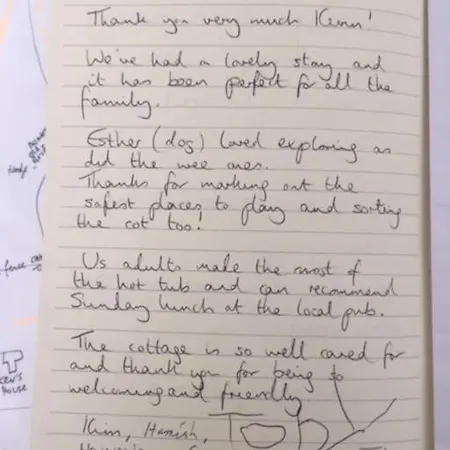 Thank you very much Kevin!
We've had a lovely stay and
it has been perfect for all the
family.
Esther (dog) loved exploring as
did the wee ones.
Thanks for marking out the
safest places to play and sorting
the cot too!
Us adults make the most of
the hot tub and can recommend
Sunday lunch at the local pub.
The cottage is so well cared for
and thank you for being so
welcoming and friendly
Kim, Hamish,
fence
HOUSE